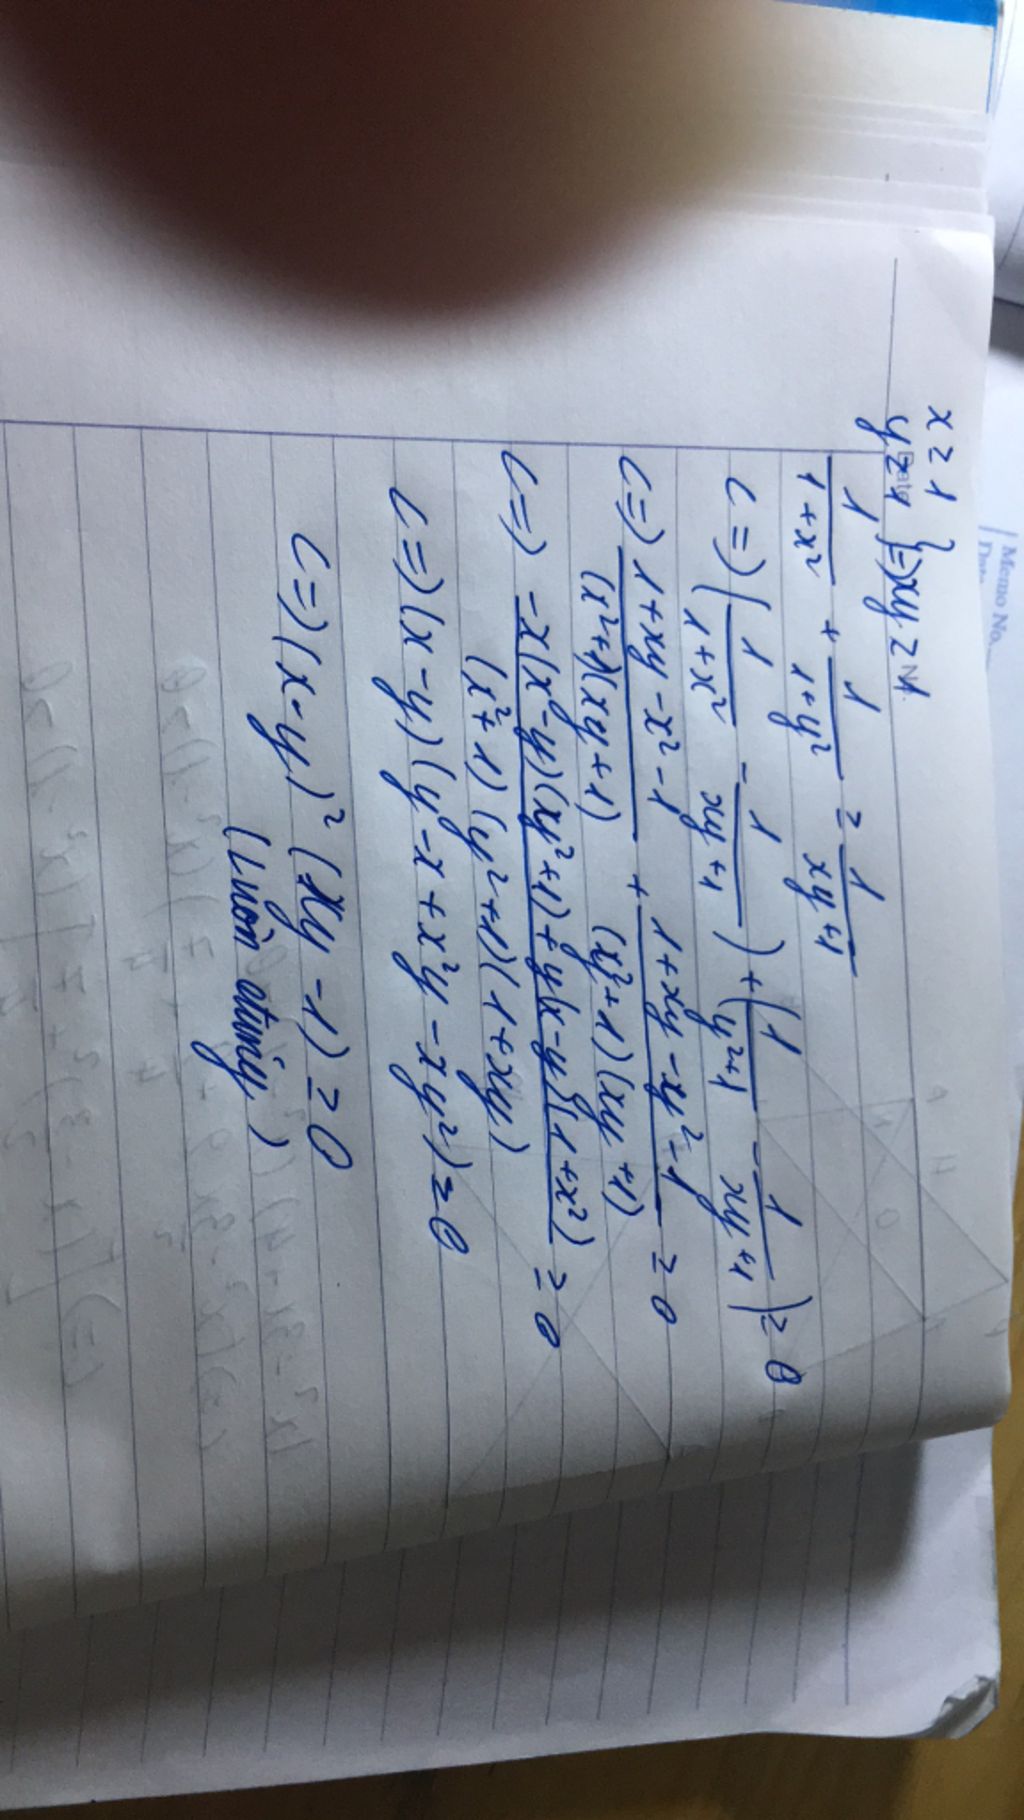 x ≥ 1
y ≥ 1 } => xy ≥ 1
Date No.
Memo No.
1/(1+x²) + 1/(1+y²) ≥ 1/(xy+1)
<=> (1/(1+x²) - 1/(xy+1)) + (1/(y²+1) - 1/(xy+1)) ≥ 0
<=> (1+xy-x²-1)/((x²+1)(xy+1)) + (1+xy-xy²-1)/((y²+1)(xy+1)) ≥ 0
<=> (-x(x-y)(xy²+1)+y(x-y)(1+x²))/((x²+1)(y²+1)(1+xy)) ≥ 0
<=> (x-y)(y-x+x²y-xy²) ≥ 0
<=> (x-y)² (xy-1) ≥ 0
(Luôn đúng)